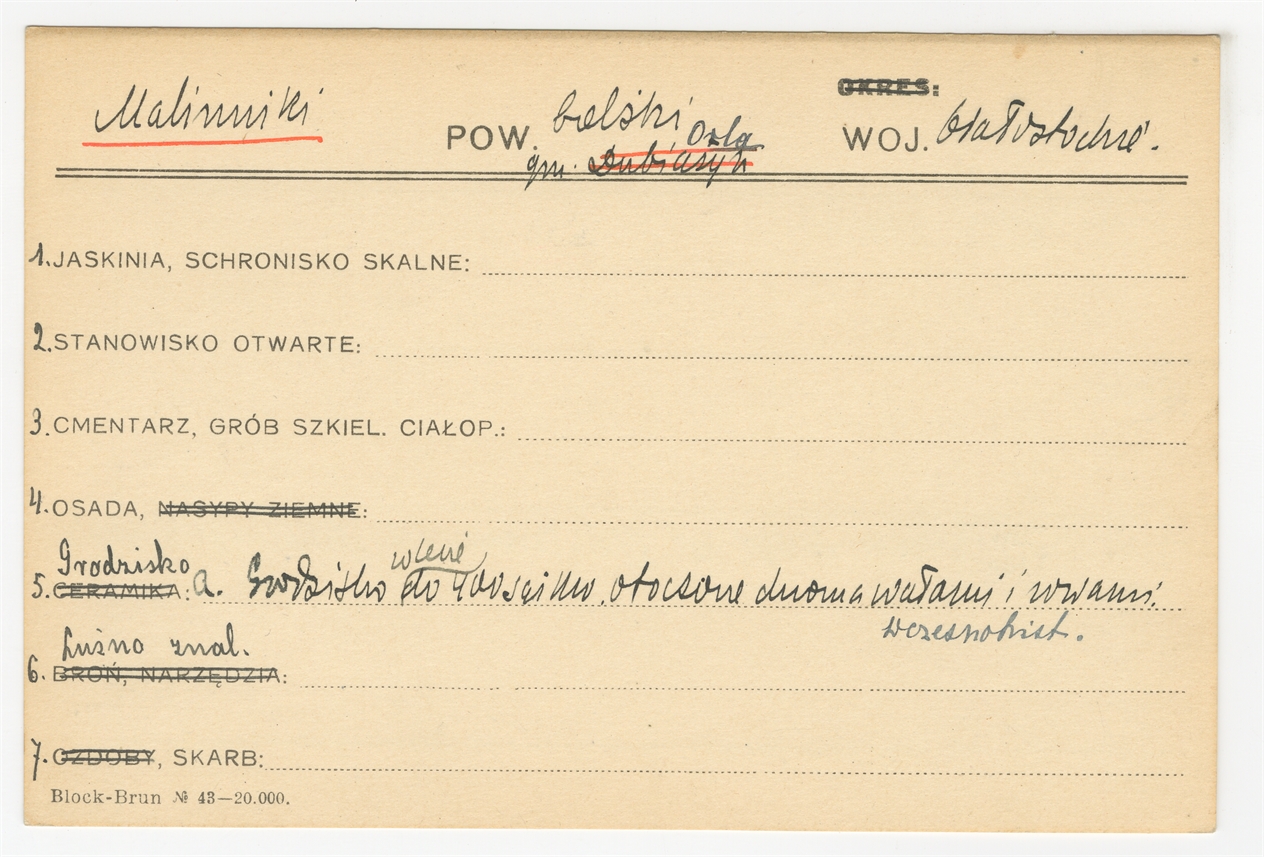 OKRES:
Malinniki POW. bielski WOJ. białostockie.
Orla
gm. Dubiażyn
1. JASKINIA, SCHRONISKO SKALNE:
2. STANOWISKO OTWARTE:
3. CMENTARZ, GRÓB SZKIEL. CIAŁOP.:
4. OSADA, NASYPY ZIEMNE:
Grodzisko
5. CERAMIKA: a. Grodzisko do otoczone dwoma wałami i rowami.
wczesnohist.
Luźno znal.
6. BROŃ, NARZĘDZIA:
7. OZDOBY, SKARB:
Block-Brun № 43—20.000.